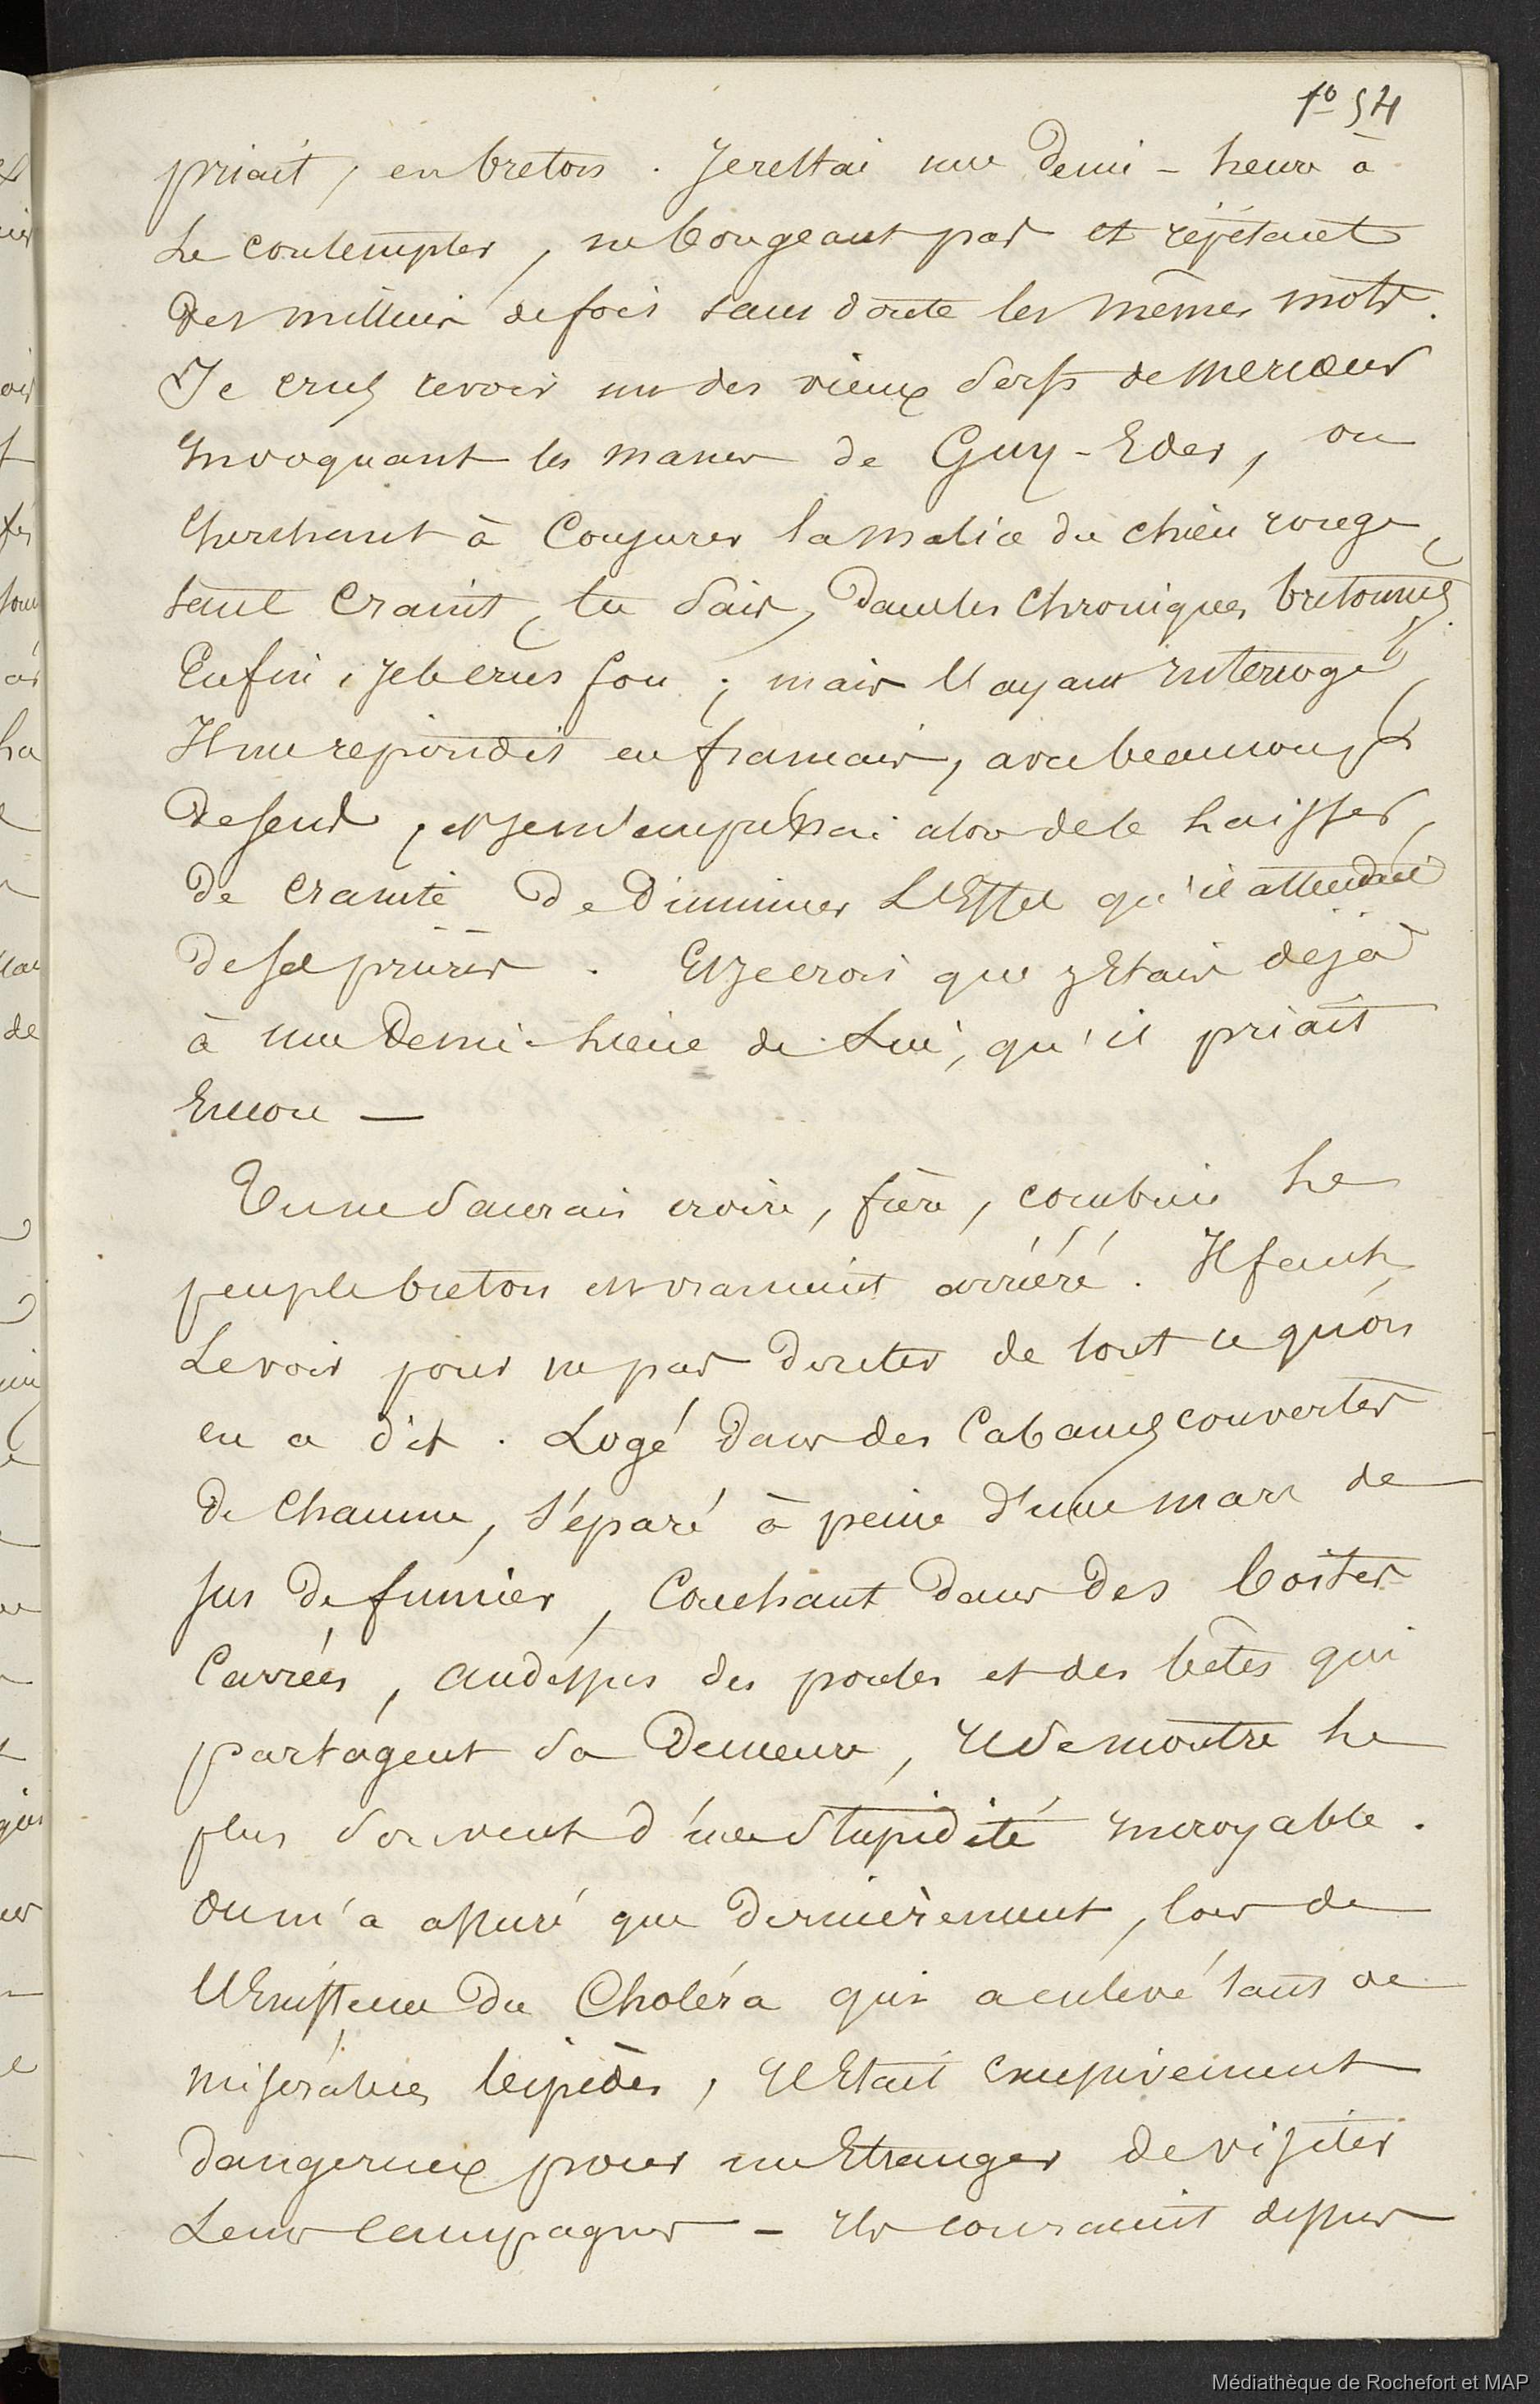 fo 54
priait, en breton. Je restai une demi-heure à
Le contempler, ne bougeant pas et répétant
Des milliers de fois sans doute les mêmes mots.
Je crus revoir un des vieux serfs de mercœur
Invoquant les manes de Guy-Eder, ou
Cherchant à Conjurer la malice du chien rouge,
tant Craint, tu sais, dans les chroniques bretonnes.
Enfin, je le crus fou ; mais l'ayant Interrogé,
Il me répondit en français, avec beaucoup
De sens, et je m'empressai alors de le laisser,
De crainte De Diminuer L'Effet qu'il attendait
De ses prières. Et je crois que j'Etais déjà
à une Demi-lieue de Lui, qu'il priait
Encore —
Tu ne saurais croire, frère, combien le
peuple breton est vraiment arriéré. Il faut
Le voir pour ne pas douter de tout ce qu'on
en a dit. Logé Dans des Cabanes couvertes
De Chaume, séparé à peine d'une mare de
jus De fumier, Couchant Dans Des boites
Carrées, au dessus des poules et des bêtes qui
partagent sa Demeure, Il se montre le
plus souvent d'une stupidité Incroyable.
On m'a assuré que dernièrement, lors de
L'Existence Du Choléra qui a enlevé tant de
misérables bipèdes, Il Etait excessivement
Dangereux pour un Etranger de visiter
Leurs Campagnes — Ils couraient dessus
Médiathèque de Rochefort et MAP